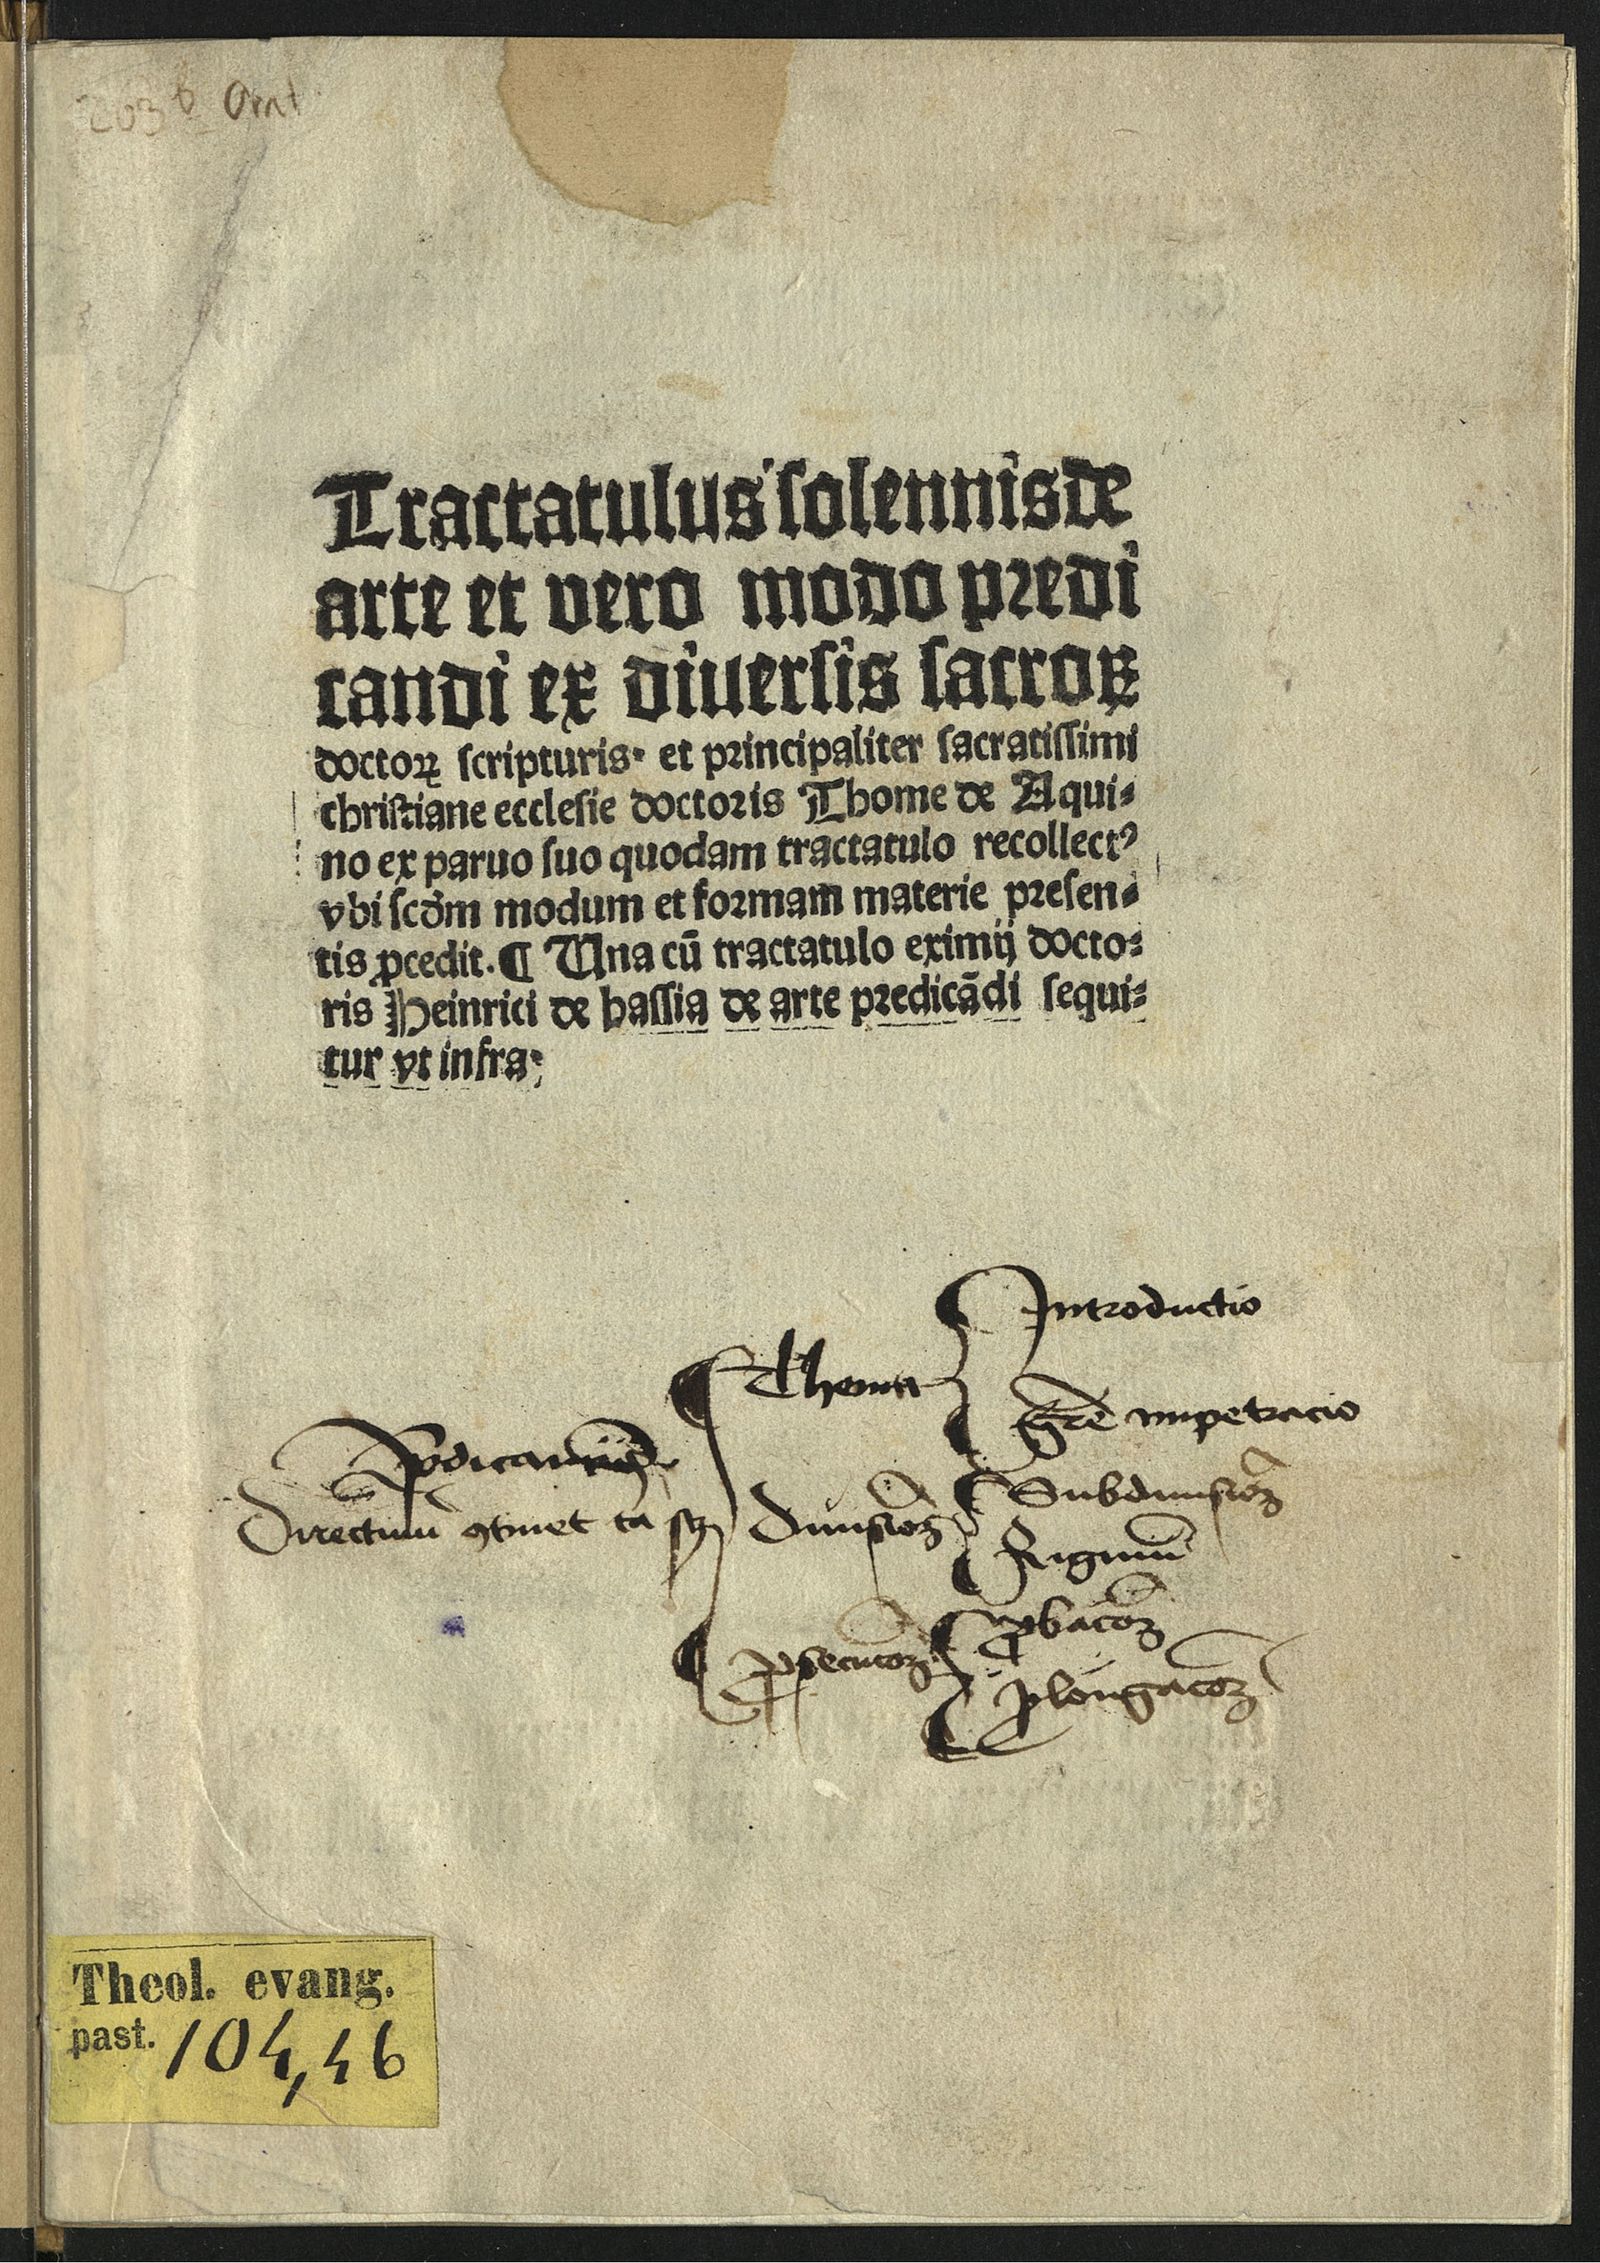 Tractatulus solennis de
arte et vero modo predi
candi ex diuersis sacroꝝ
doctoꝝ scripturis· et principaliter sacratissimi
christiane ecclesie doctoris Thome de Aqui⸗
no ex paruo suo quodam tractatulo recollectꝰ
vbi scd̄m modum et formam materie presen⸗
tis ꝓcedit. ¶ Una cū tractatulo eximij docto⸗
ris Heinrici de hassia de arte predicādi sequi⸗
tur vt infra·
Introductio
Thema
gr̄e impetracio
Subdiuisioꝫ
directiuū ꝯtinet
diuisioꝫ
ꝓbacōꝫ
ꝓsecucoꝫ
ꝓlongacōꝫ
Theol. evang.
past. 104,46